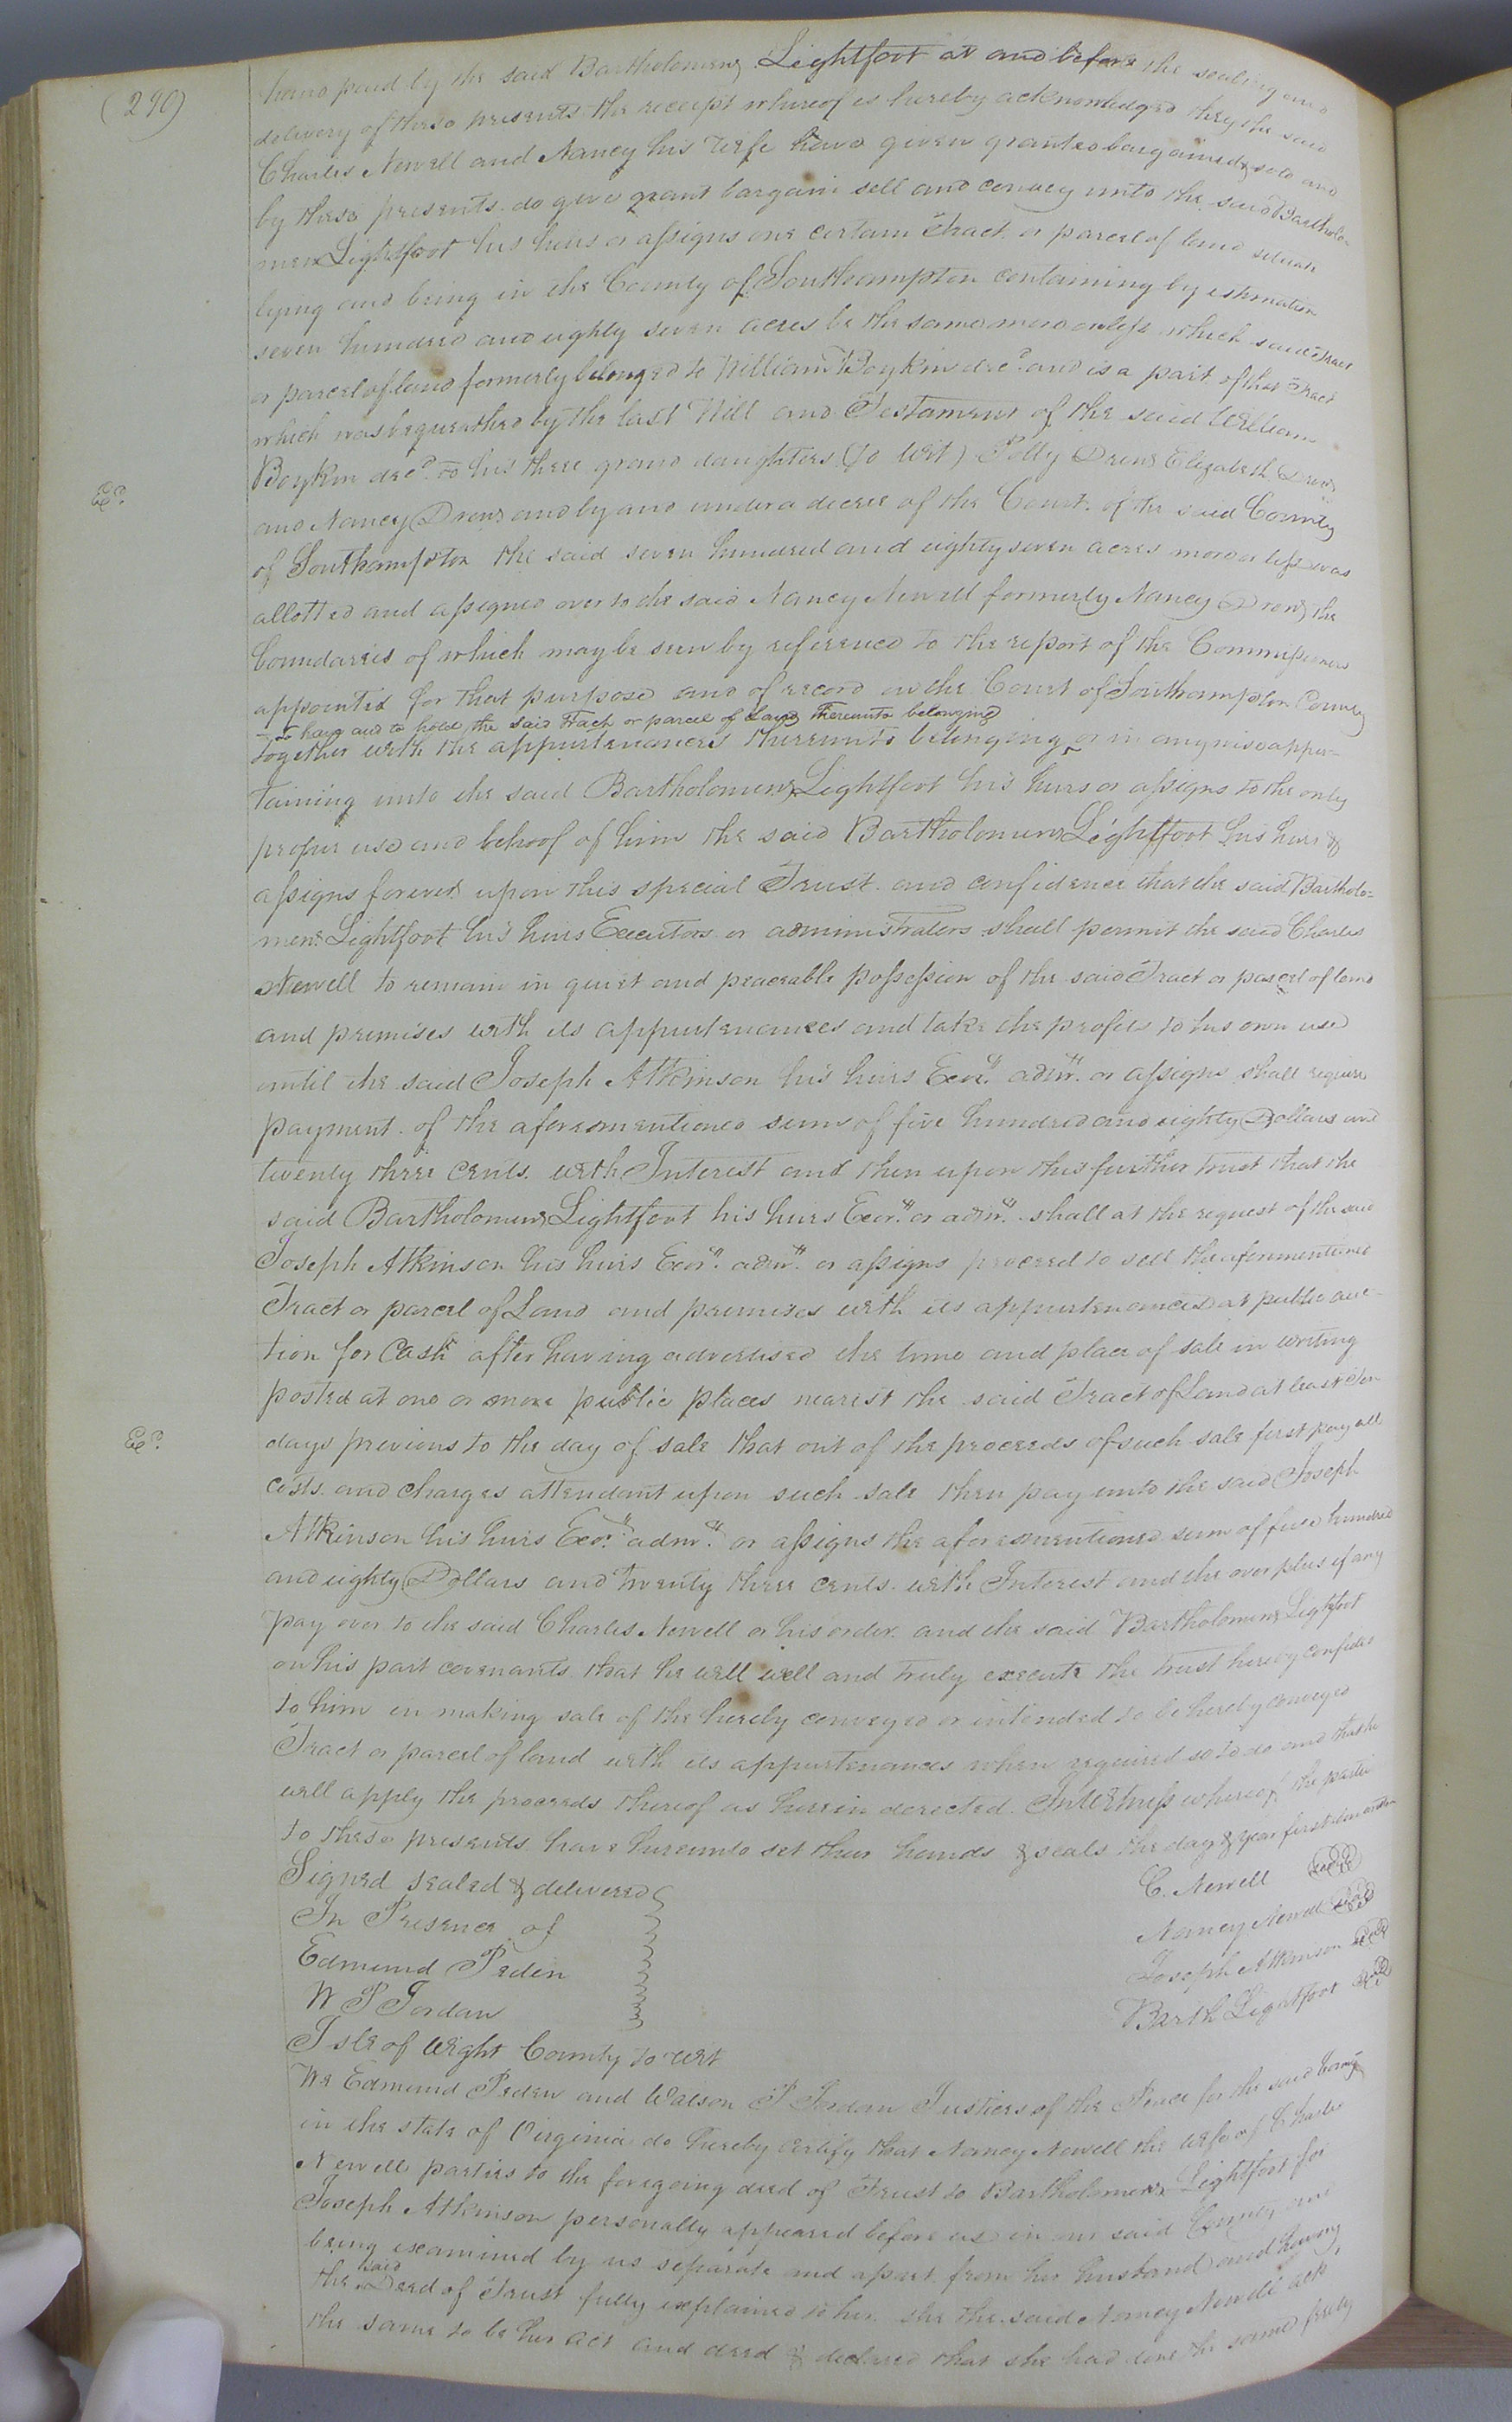 (290)
hand paid by the said Bartholomew Lightfoot at and before the sealing and
delivery of these presents the receipt whereof is hereby acknowledged they the said
Charles Newell and Nancy his Wife have given granted bargained & sold and
by these presents do give grant bargain sell and convey unto the said Bartholo-
mew Lightfoot his heirs or assigns one certain Tract or parcel of land situate
lying and being in the County of Southampton containing by estimation
seven hundred and eighty seven acres be the same more or less which said Tract
or parcel of land formerly belonged to William Boykin decd. and is a part of that Tract
which was bequeathed by the last Will and Testament of the said William
Boykin decd. to his three grand daughters (to Wit) Polly Drew Elizabeth Drew
and Nancy Drew and by and under a decree of the Court of the said County
Ex.
of Southampton the said seven hundred and eighty seven acres more or less was
allotted and assigned over to the said Nancy Newell formerly Nancy Drew the
boundaries of which may be seen by reference to the report of the Commissioners
appointed for that purpose and of record in the Court of Southampton County
to have and to hold the said Tract or parcel of Land thereunto belonging
together with the appurtenances thereunto belonging or in any wise apper-
taining unto the said Bartholomew Lightfoot his heirs or assigns to the only
proper use and behoof of him the said Bartholomew Lightfoot his heirs &
assigns forever upon this special Trust and confidence that the said Bartholo-
mew Lightfoot his heirs Executors or administrators shall permit the said Charles
Newell to remain in quiet and peaceable possession of the said Tract or parcel of land
and premises with its appurtenances and take the profits to his own use
until the said Joseph Atkinson his heirs Exors. admrs. or assigns shall require
payment of the aforementioned sum of five hundred and eighty Dollars and
twenty three cents with Interest and then upon this further trust that the
said Bartholomew Lightfoot his heirs Exors. or admrs. shall at the request of the said
Joseph Atkinson his heirs Exors. admrs. or assigns proceed to sell the aforementioned
Tract or parcel of Land and premises with its appurtenances at public auc-
tion for Cash after having advertised the time and place of sale in writing
posted at one or more public places nearest the said Tract of Land at least ten
days previous to the day of sale that out of the proceeds of such sale first pay all
Ex.
costs and charges attendant upon such sale then pay unto the said Joseph
Atkinson his heirs Exors. admrs. or assigns the aforementioned sum of five hundred
and eighty Dollars and twenty three cents with Interest and the over plus if any
pay over to the said Charles Newell or his order and the said Bartholomew Lightfoot
on his part covenants that he will well and truly execute the trust hereby confided
to him in making sale of the hereby conveyed or intended to be hereby conveyed
Tract or parcel of land with its appurtenances when required so to do and that he
will apply the proceeds thereof as herein directed. In Witness whereof the parties
to these presents have hereunto set their hands & seals the day & year first above written
Signed sealed & delivered
In Presence of
Edmund Peden
W P Jordan
C. Newell seal
Nancy Newell seal
Joseph Atkinson seal
Barth Lightfoot seal
Isle of Wight County to Wit
We Edmund Peden and Watson P Jordan Justices of the Peace for the said County
in the state of Virginia do hereby certify that Nancy Newell the wife of Charles
Newell parties to the foregoing deed of Trust to Bartholomew Lightfoot for
Joseph Atkinson personally appeared before us in our said County and
being examined by us separate and apart from her husband and having
the said Deed of Trust fully explained to her she the said Nancy Newell ack.
the same to be her act and deed & declared that she had done the same freely